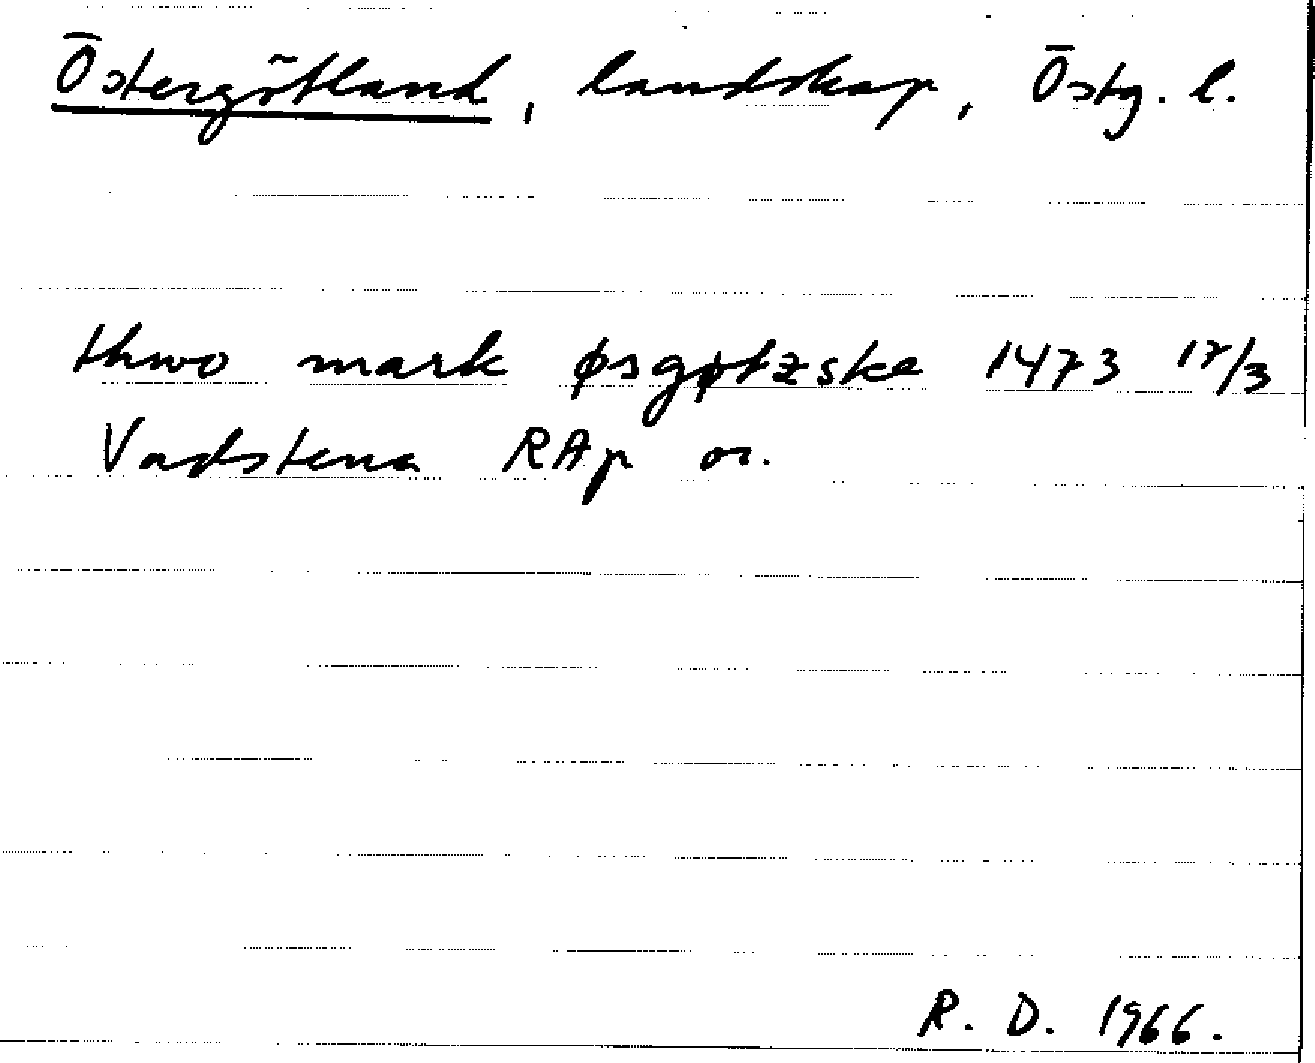 Östergötland, landskap, Östg. l.
thwo mark øsgøtzske 1473 17/3
Vadstena RAp or.
R. D. 1966.